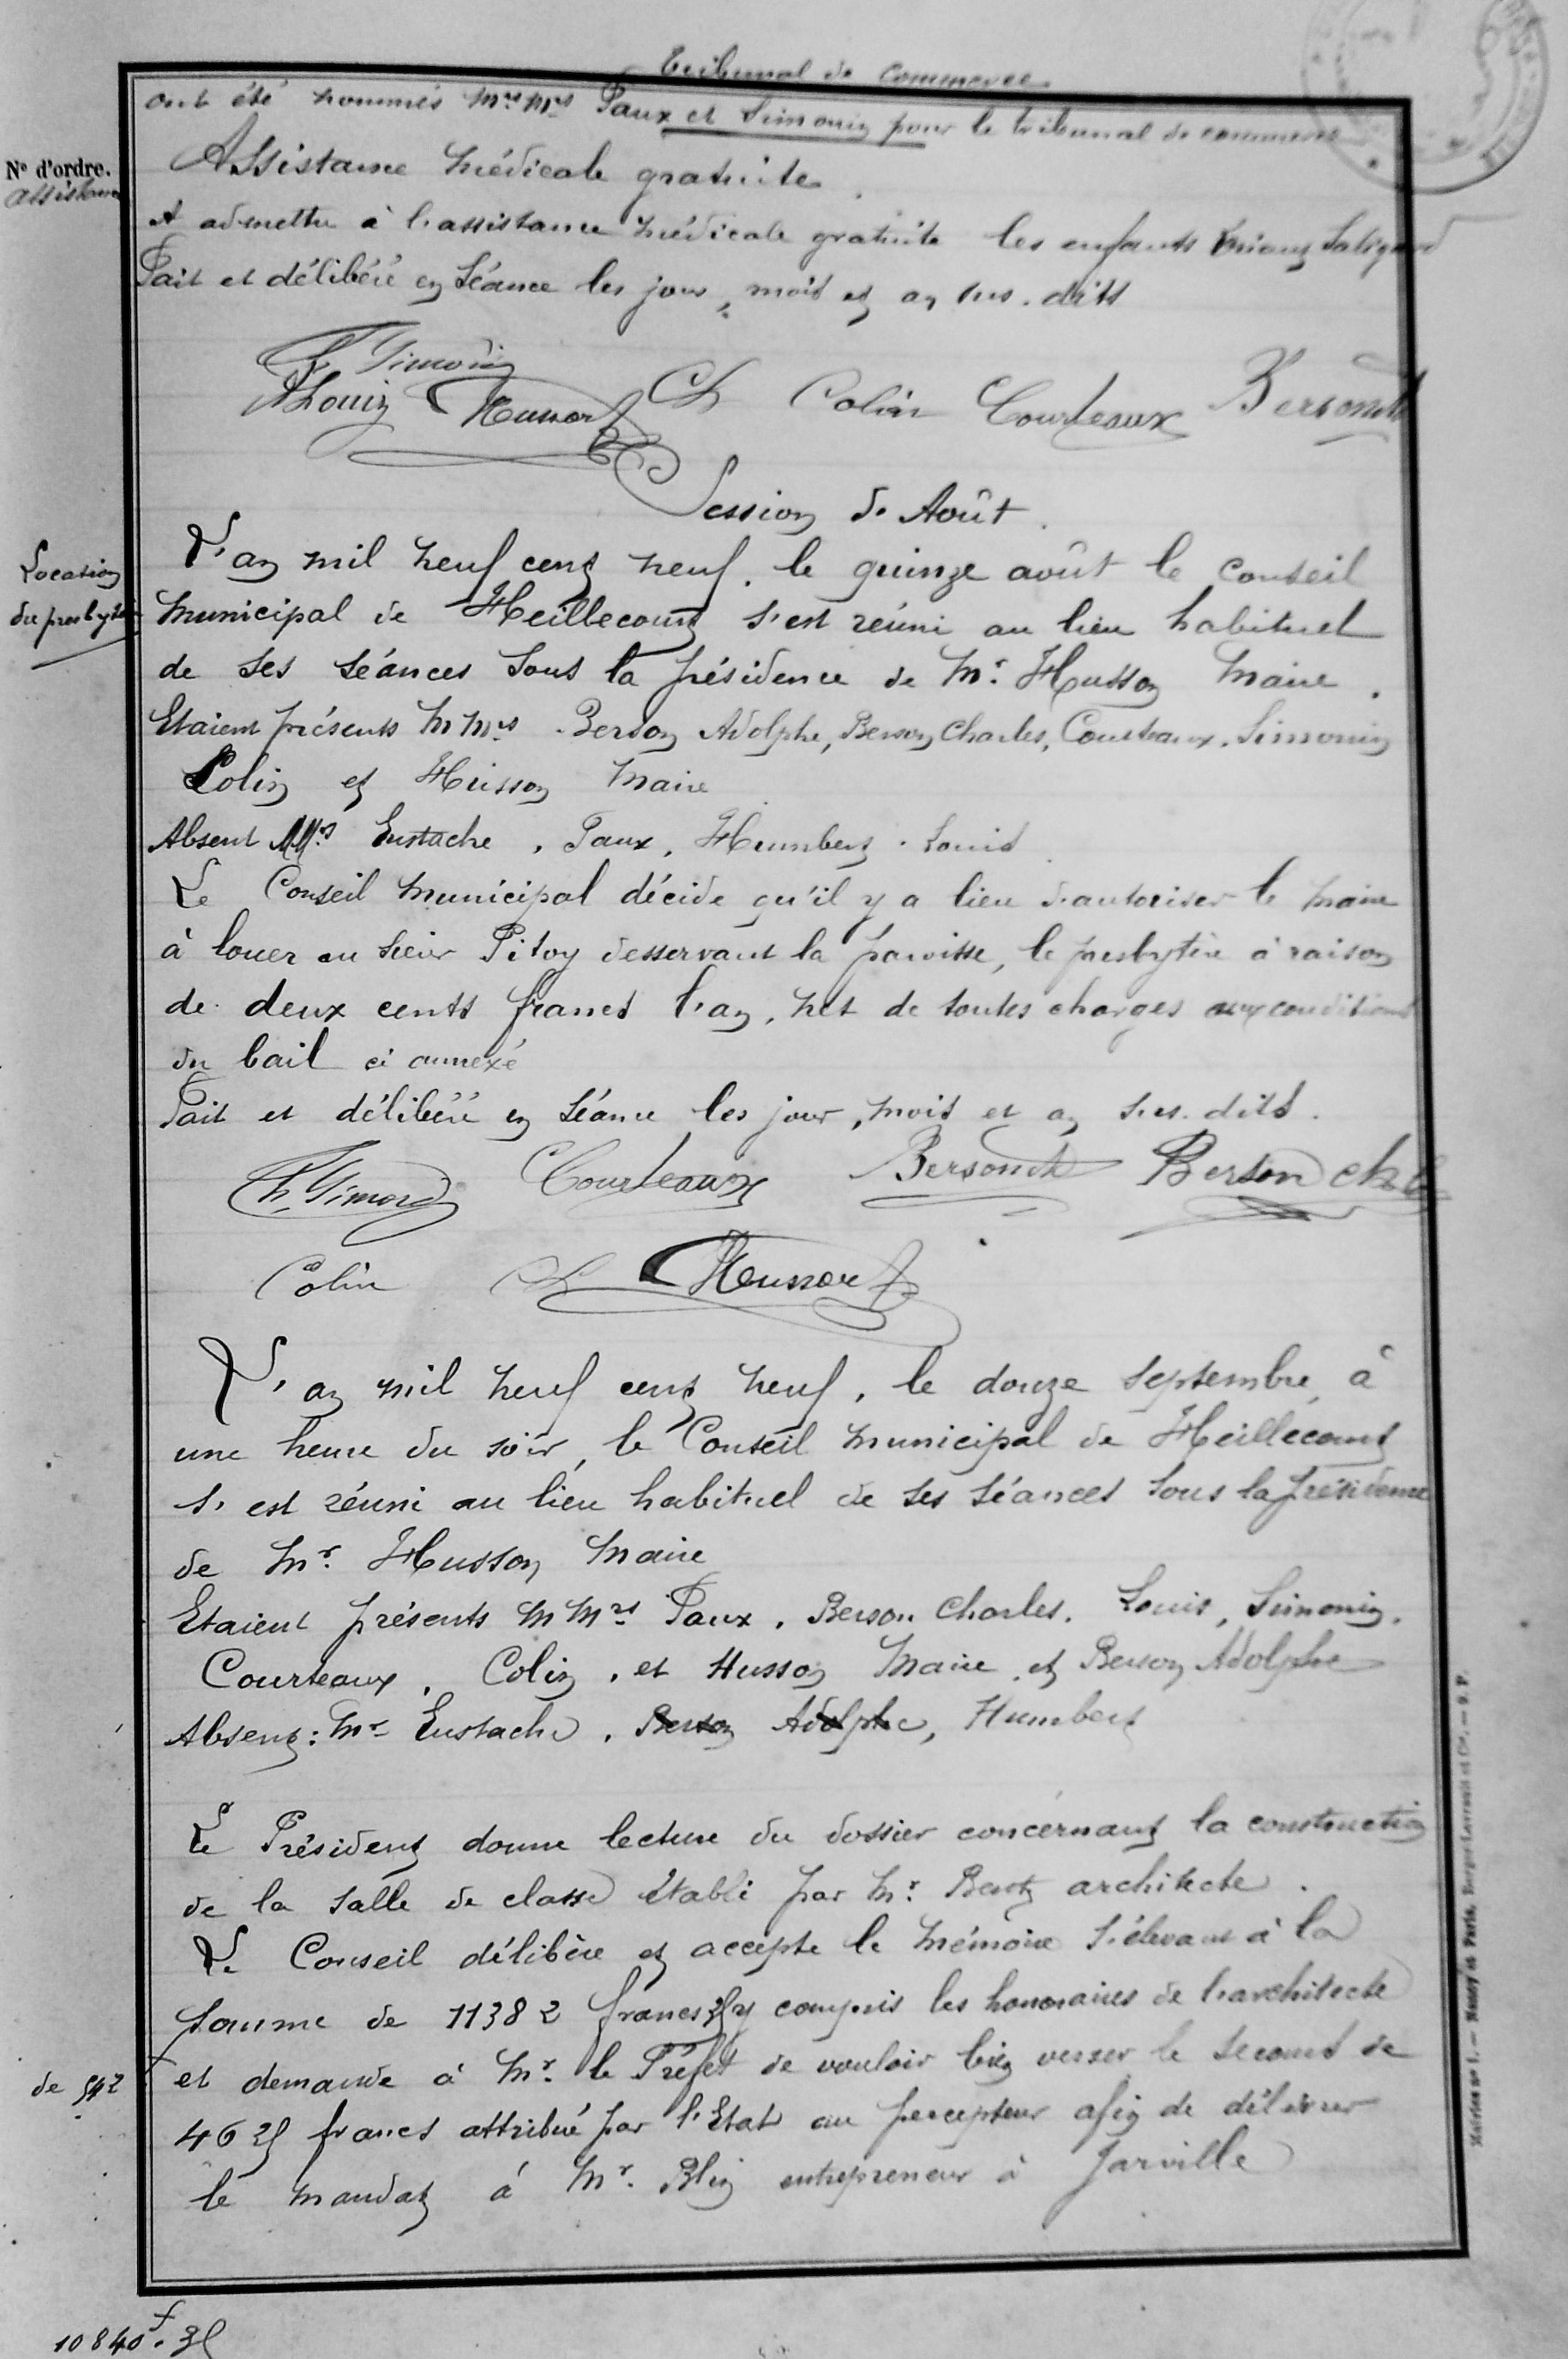 Tribunal de Commerce
ont été nommés Mrs Mrs Paux et Simonin pour le tribunal de commerce
N° d'ordre.
assistance
Assistance médicale gratuite
A admettre à l'assistance médicale gratuite les enfants
Fait et délibéré en séance les jour, mois et an sus-dits
Simonin
Louis Husson Ch Colin Courteaux Berson
Session de Août.
Location
du presbytère
L'an mil neuf cent neuf, le quinze août le Conseil
Municipal de Heillecourt s'est réuni au lieu habituel
de ses séances sous la présidence de Mr. Husson Maire.
Etaient présents MMrs Berson Adolphe, Berson Charles, Courteaux, Simonin
Colin et Husson Maire
Absent MMrs Eustache, Paux, Humbert. Louis
Le Conseil Municipal décide qu'il y a lieu d'autoriser le Maire
à louer au sieur Pitoy desservant la paroisse, le presbytère à raison
de deux cents francs l'an, net de toutes charges aux conditions
du bail ci annexé
Fait et délibéré en séance les jour, mois et an sus-dits.
Ch. Simonin Courteaux Berson Berson ch
Colin Husson
L'an mil neuf cent neuf, le douze septembre, à
une heure du soir, le Conseil Municipal de Heillecourt
s'est réuni au lieu habituel de ses séances sous la présidence
de Mr. Husson Maire
Etaient présents MMrs Paux, Berson Charles, Louis, Simonin,
Courteaux, Colin, et Husson Maire, et Berson Adolphe
Absent: Mr Eustache, Berson Adolphe, Humbert
Le Président donne lecture du dossier concernant la construction
de la salle de classe établi par Mr. architecte.
Le Conseil délibère et accepte le mémoire s'élevant à la
somme de 11382 francs 35 y compris les honoraires de l'architecte
de 542
et demande à Mr. le Préfet de vouloir bien verser le secours de
4625 francs attribué par l'Etat au percepteur afin de délivrer
le mandat à Mr. Blin entrepreneur à Jarville
10840f.35
Mairies n° 1. — Nancy et Paris, Berger-Levrault et Cie. — 9. P.